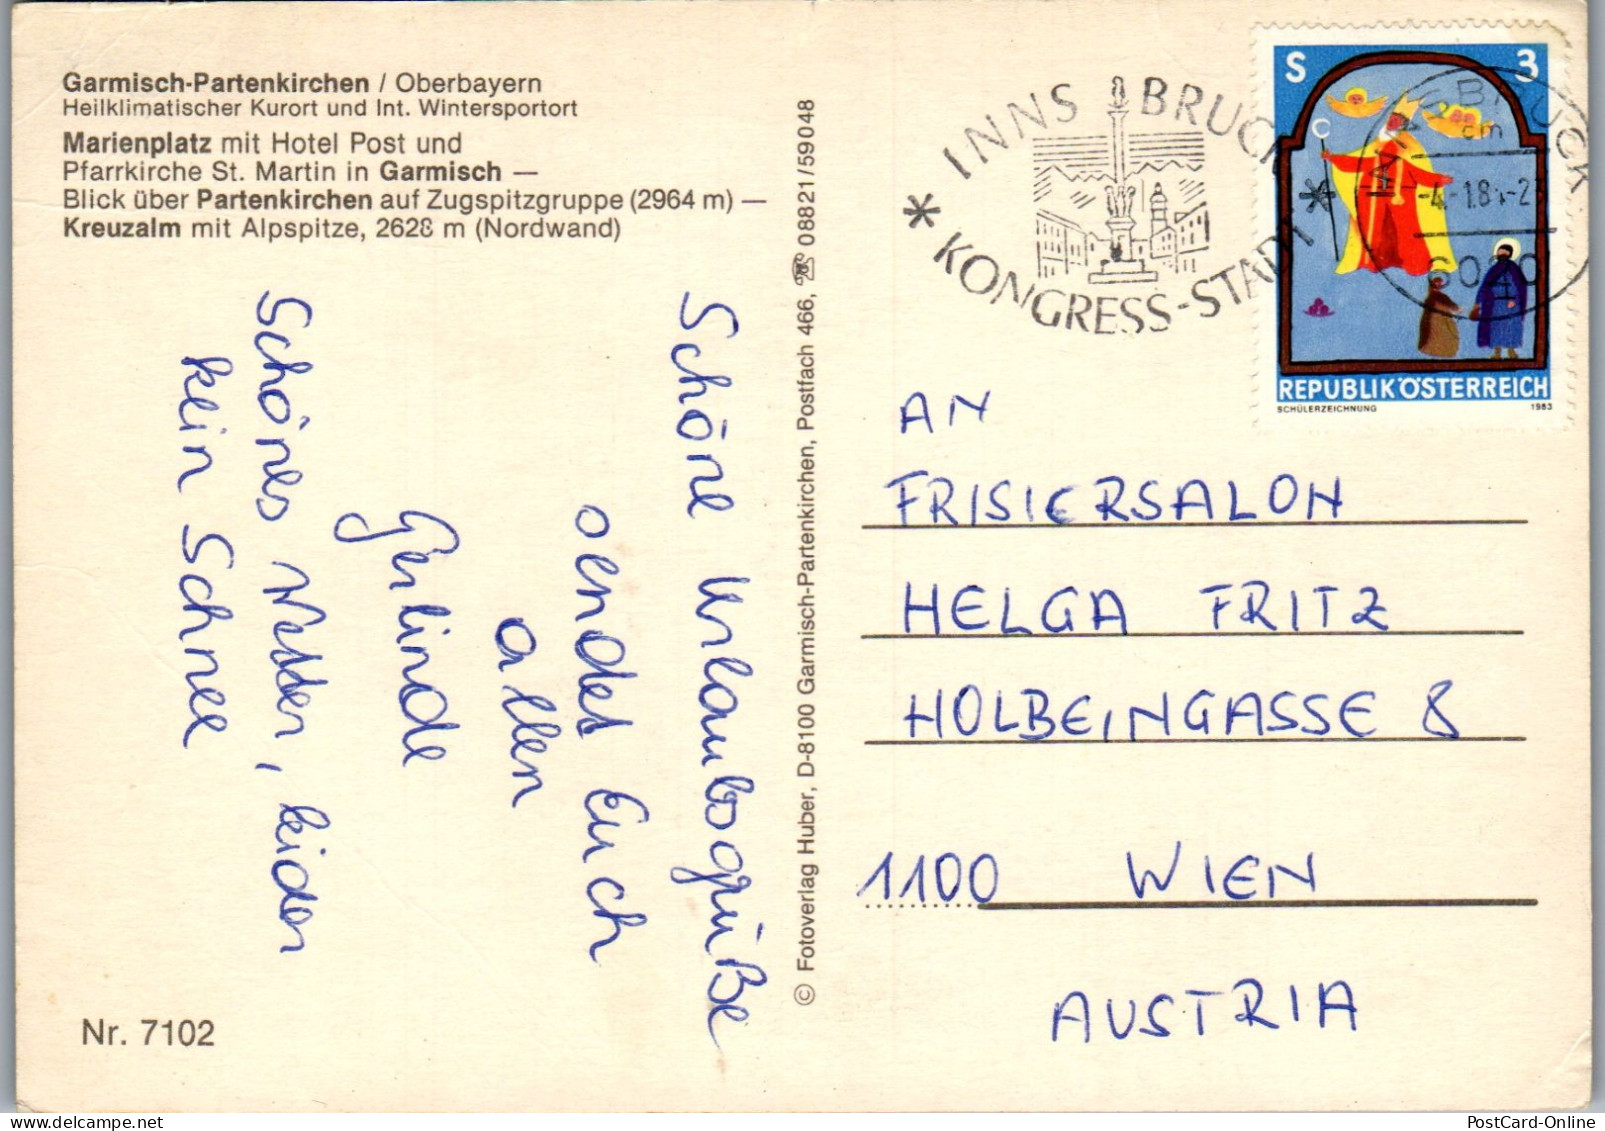 Garmisch-Partenkirchen / Oberbayern
Heilklimatischer Kurort und Int. Wintersportort
Marienplatz mit Hotel Post und
Pfarrkirche St. Martin in Garmisch —
Blick über Partenkirchen auf Zugspitzgruppe (2964 m) —
Kreuzalm mit Alpspitze, 2628 m (Nordwand)
Schöne Urlaubsgrüße
sendet Euch
allen
Gerlinde
Schönes Wetter, leider
kein Schnee
Nr. 7102
© Fotoverlag Huber, D-8100 Garmisch-Partenkirchen, Postfach 466, ☎ 08821/59048
* INNSBRUCK *
KONGRESS-STADT
INNSBRUCK
6020
S 3
REPUBLIK ÖSTERREICH
SCHÜLERZEICHNUNG 1983
AN
FRISIERSALON
HELGA FRITZ
HOLBEINGASSE 8
1100 WIEN
AUSTRIA
PostCard-Online